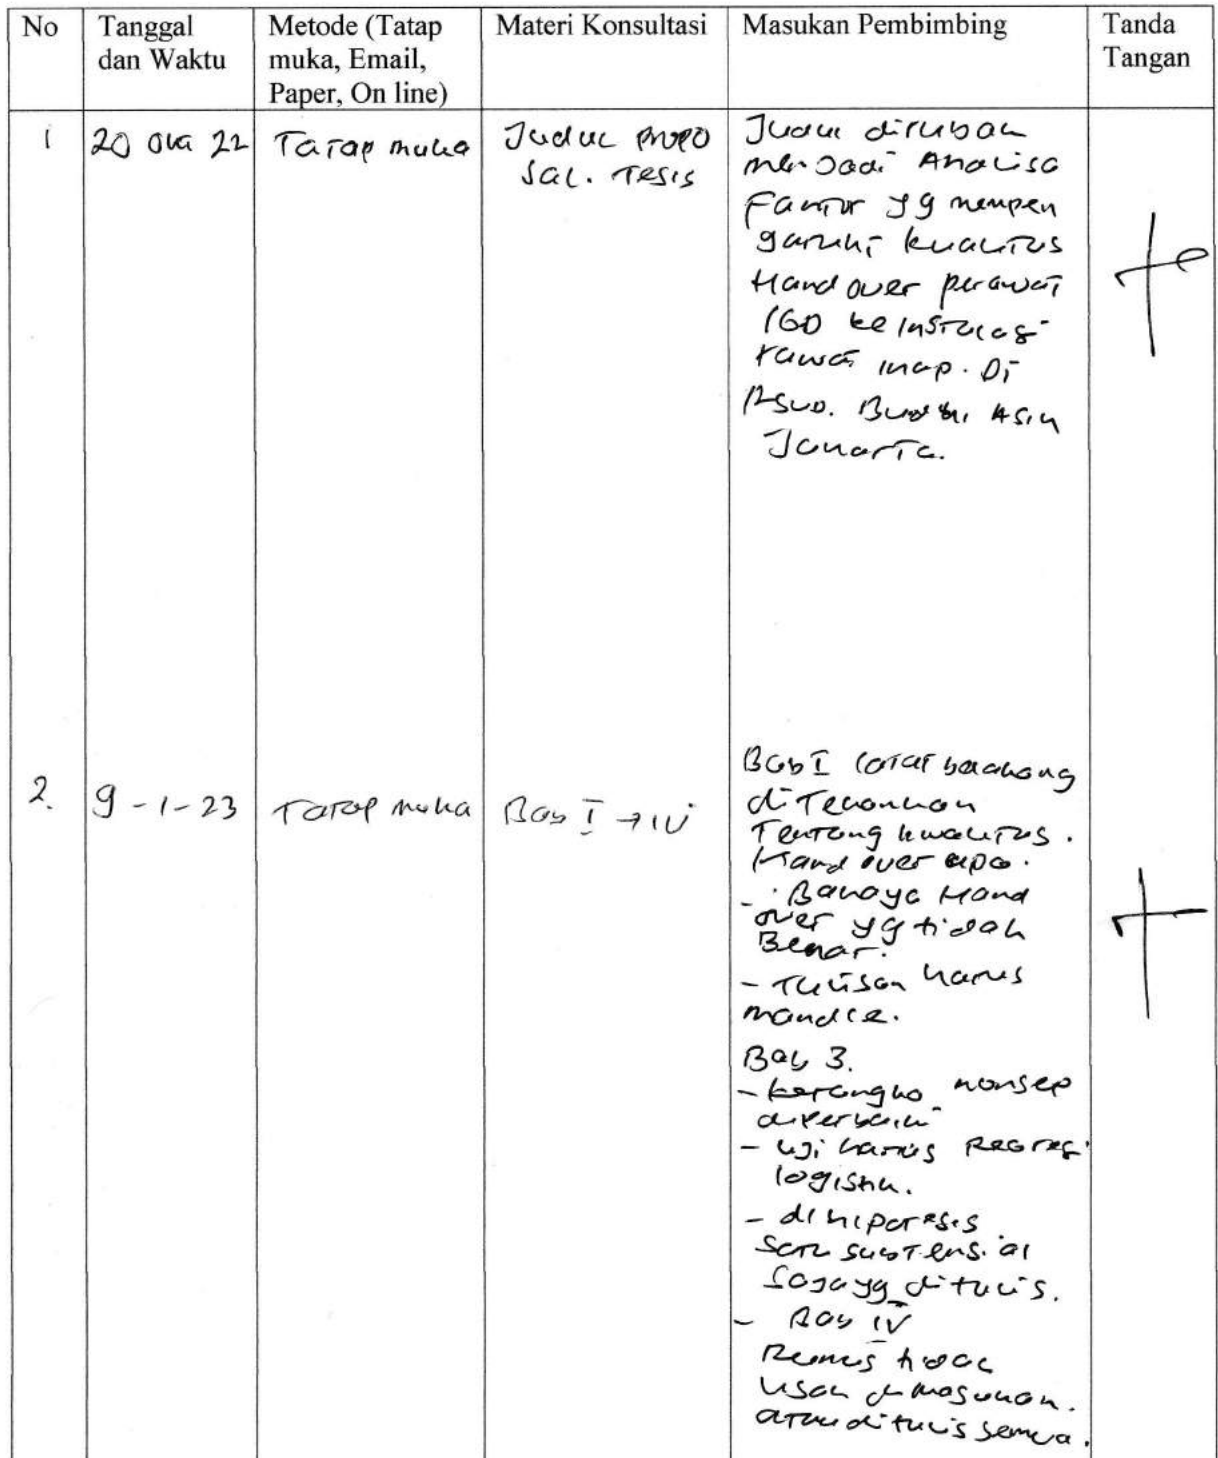 No
Tanggal
dan Waktu
Metode (Tatap
muka, Email,
Paper, On line)
Materi Konsultasi
Masukan Pembimbing
Tanda
Tangan
1
20 Okt 22
Tatap muka
Judul propo
sal. Tesis
Judul dirubah
menjadi Analisa
Faktor yg mempen
garuhi kualitas
Hand over perawat
IGD ke instalasi
rawat inap. Di
RSUD. Budhi Asih
Jakarta.
2.
9-1-23
Tatap muka
Bab I → IV
Bab I latar belakang
di Tekankan
Tentang kwalitas.
Hand over
- Bahaya Hand
over yg tidak
Benar.
- Tulisan harus
Bab 3.
- kerangka konsep
diperbaiki
- uji harus Regresi
logistik.
- di hipotesis
satu substensial
saja yg di tulis.
- Bab IV
Rumus tidak
usah di masukan.
atau di tulis semua.